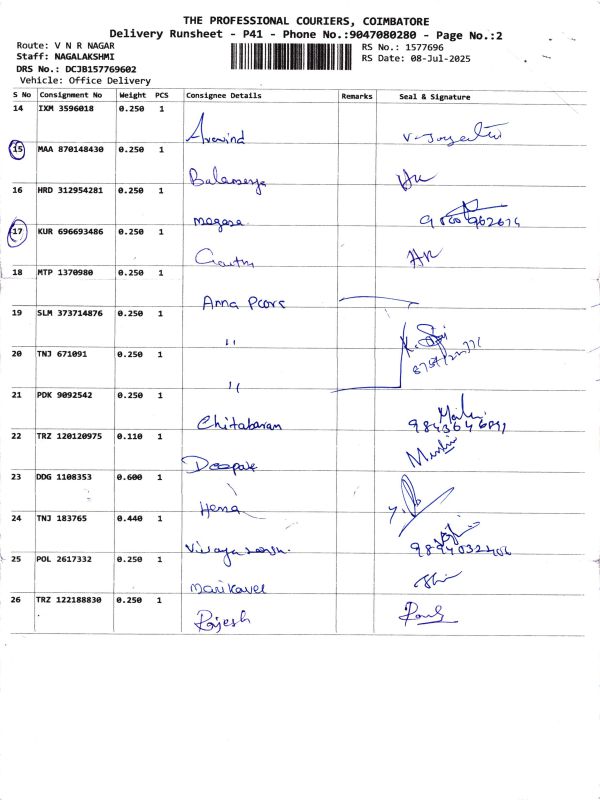 THE PROFESSIONAL COURIERS, COIMBATORE
Delivery Runsheet - P41 - Phone No.:9047080280 - Page No.:2
Route: V N R NAGAR
Staff: NAGALAKSHMI
DRS No.: DCJB157769602
Vehicle: Office Delivery
RS No.: 1577696
RS Date: 08-Jul-2025
S No Consignment No Weight PCS Consignee Details Remarks Seal & Signature
14 IXM 3596018 0.250 1
Aravind
15 MAA 870148430 0.250 1
16 HRD 312954281 0.250 1
17 KUR 696693486 0.250 1
18 MTP 1370980 0.250 1
Anna Poora
19 SLM 373714876 0.250 1
"
20 TNJ 671091 0.250 1
"
21 PDK 9092542 0.250 1
Chitabaran
22 TRZ 120120975 0.110 1
Deepak
23 DDG 1108353 0.600 1
Hema
24 TNJ 183765 0.440 1
25 POL 2617332 0.250 1
Marikavel
26 TRZ 122188830 0.250 1
Rajesh